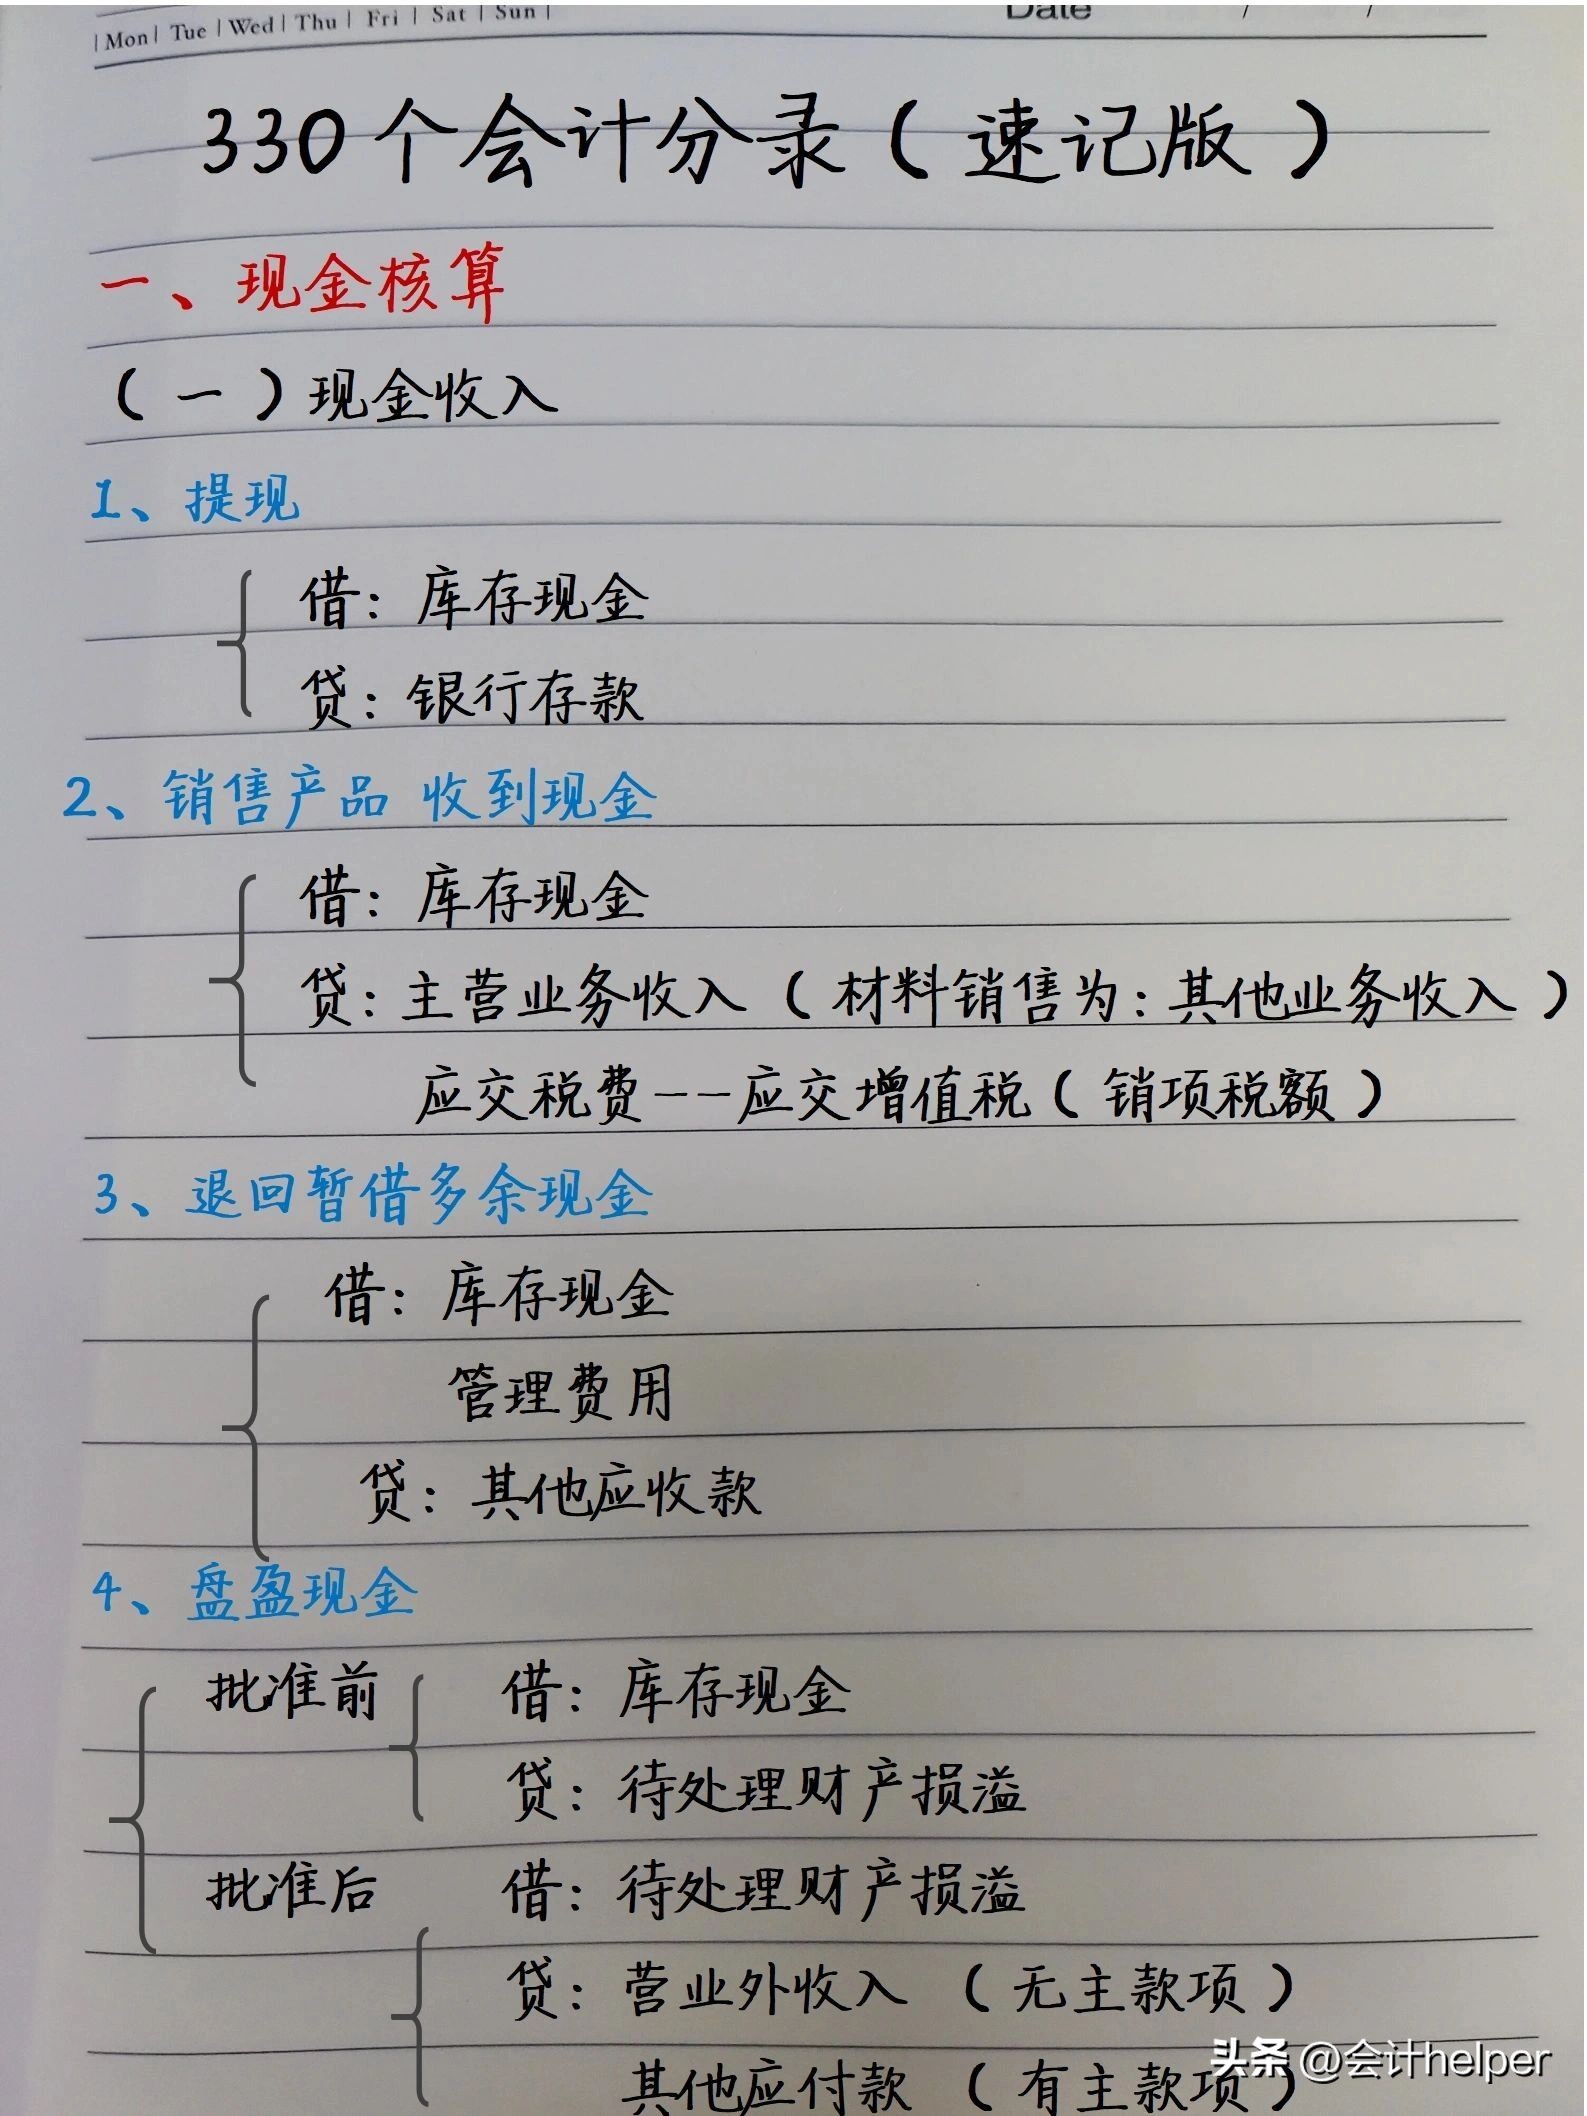 Mon | Tue | Wed | Thu | Fri | Sat | Sun |
Date / /
330个会计分录(速记版)
一、现金核算
(一)现金收入
1、提现
借:库存现金
贷:银行存款
2、销售产品 收到现金
借:库存现金
贷:主营业务收入(材料销售为:其他业务收入)
应交税费--应交增值税(销项税额)
3、退回暂借多余现金
借:库存现金
管理费用
贷:其他应收款
4、盘盈现金
批准前 借:库存现金
贷:待处理财产损溢
批准后 借:待处理财产损溢
贷:营业外收入(无主款项)
其他应付款(有主款项)
头条 @会计helper